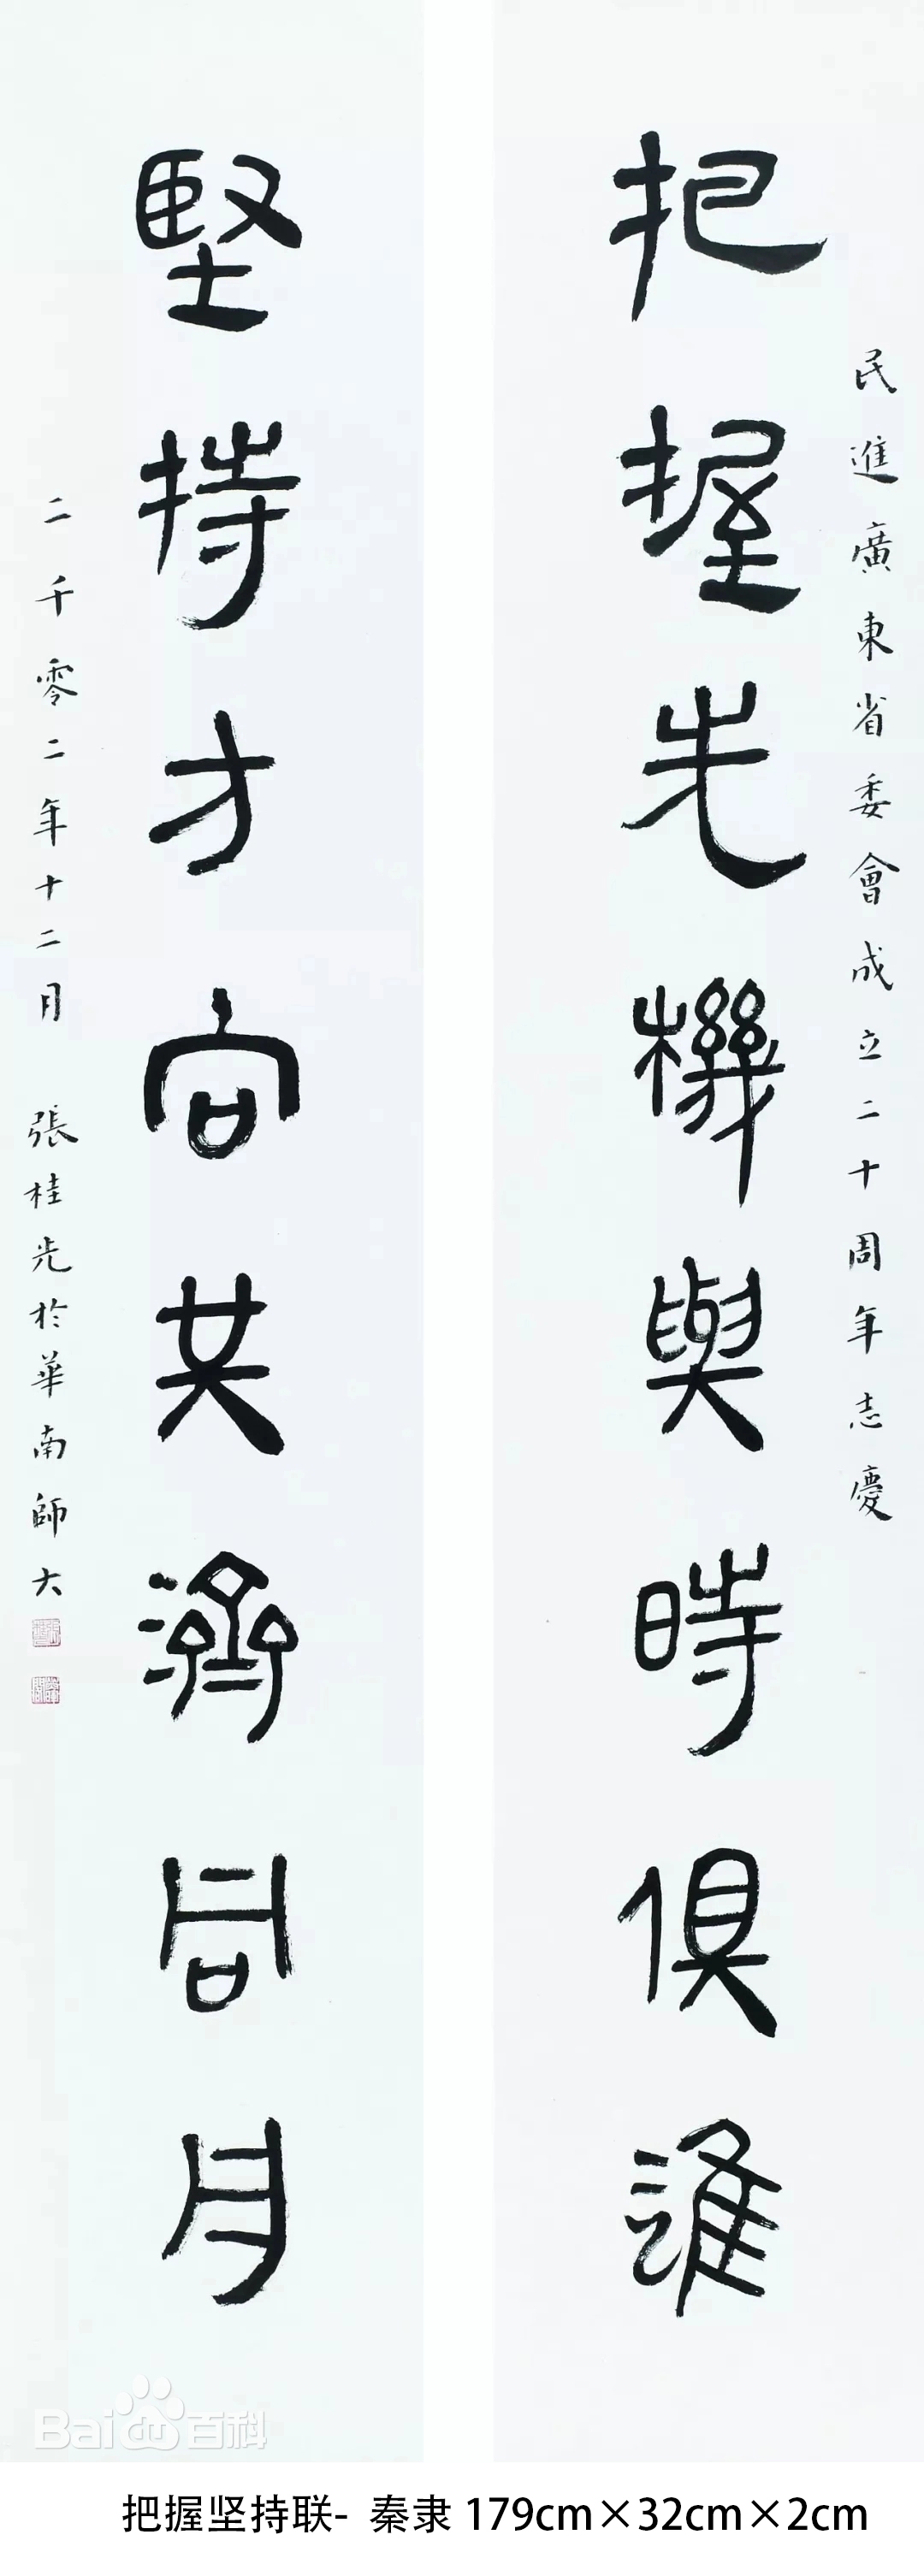 民進廣東省委會成立二十周年志慶
把握先機與時俱進
堅持方向共濟同舟
二千零二年十二月 張桂光於華南師大
Baidu百科
把握坚持联- 秦隶 179cm×32cm×2cm